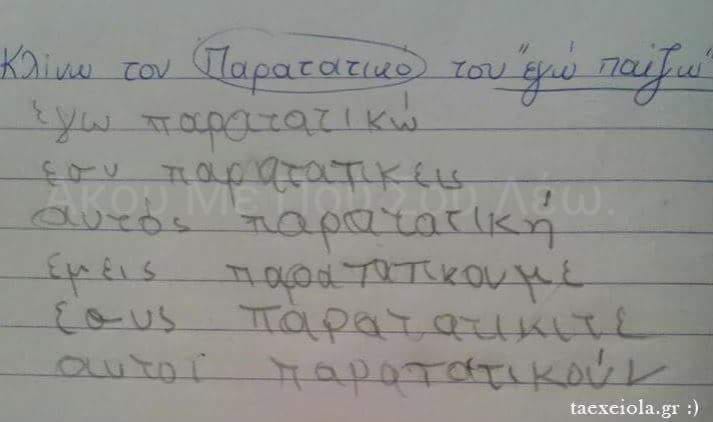 Κλίνω τον Παρατατικό του "εγώ παίζω"
έγω παρατατικώ
εσυ παρατατικεις
αυτός παρατατική
εμεις παρατατικουμε
εσυς παρατατικιτε
αυτοί παρατατικούν
Άκου Με Που Σου Λέω.
taexeiola.gr :)